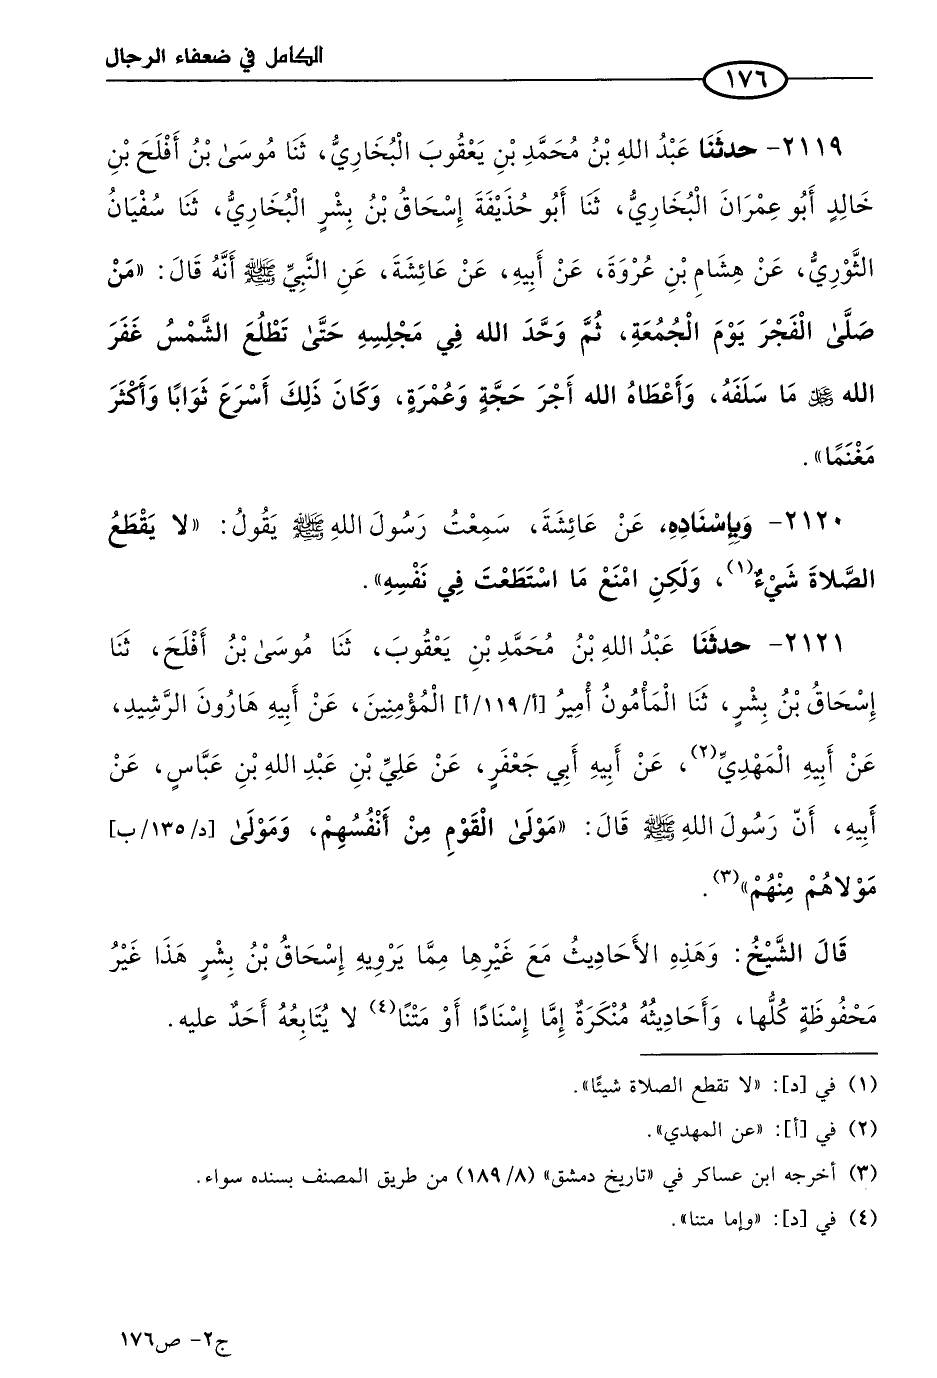 الكامل في ضعفاء الرجال
١٧٦
٢١١٩- حدثَنَا عَبْدُ اللهِ بْنُ مُحَمَّدِ بْنِ يَعْقُوبَ الْبُخَارِيُّ، ثَنَا مُوسَىٰ بْنُ أَفْلَحَ بْنِ
خَالِدٍ أَبُو عِمْرَانَ الْبُخَارِيُّ، ثَنَا أَبُو حُذَيْفَةَ إِسْحَاقُ بْنُ بِشْرٍ الْبُخَارِيُّ، ثَنَا سُفْيَانُ
الثَّوْرِيُّ، عَنْ هِشَامِ بْنِ عُرْوَةَ، عَنْ أَبِيهِ، عَنْ عَائِشَةَ، عَنِ النَّبِيِّ ﷺ أَنَّهُ قَالَ: «مَنْ
صَلَّىٰ الْفَجْرَ يَوْمَ الْجُمُعَةِ، ثُمَّ وَحَّدَ الله فِي مَجْلِسِهِ حَتَّىٰ تَطْلُعَ الشَّمْسُ غَفَرَ
الله ﷻ مَا سَلَفَهُ، وَأَعْطَاهُ الله أَجْرَ حَجَّةٍ وَعُمْرَةٍ، وَكَانَ ذَلِكَ أَسْرَعَ ثَوَابًا وَأَكْثَرَ
مَغْنَمًا».
٢١٢٠- وَبِإِسْنَادِهِ، عَنْ عَائِشَةَ، سَمِعْتُ رَسُولَ اللهِ ﷺ يَقُولُ: «لا يَقْطَعُ
الصَّلاةَ شَيْءٌ(١)، وَلَكِنِ امْنَعْ مَا اسْتَطَعْتَ فِي نَفْسِهِ».
٢١٢١- حدثَنَا عَبْدُ اللهِ بْنُ مُحَمَّدِ بْنِ يَعْقُوبَ، ثَنَا مُوسَىٰ بْنُ أَفْلَحَ، ثَنَا
إِسْحَاقُ بْنُ بِشْرٍ، ثَنَا الْمَأْمُونُ أَمِيرُ [أ/١١٩/أ] الْمُؤْمِنِينَ، عَنْ أَبِيهِ هَارُونَ الرَّشِيدِ،
عَنْ أَبِيهِ الْمَهْدِيِّ(٢)، عَنْ أَبِيهِ أَبِي جَعْفَرٍ، عَنْ عَلِيِّ بْنِ عَبْدِ اللهِ بْنِ عَبَّاسٍ، عَنْ
أَبِيهِ، أَنّ رَسُولَ اللهِ ﷺ قَالَ: «مَوْلَىٰ الْقَوْمِ مِنْ أَنْفُسُهِمْ، وَمَوْلَىٰ [د/١٣٥/ب]
مَوْلاهُمْ مِنْهُمْ»(٣).
قَالَ الشَّيْخُ: وَهَذِهِ الأَحَادِيثُ مَعَ غَيْرِها مِمَّا يَرْوِيهِ إِسْحَاقُ بْنُ بِشْرٍ هَذَا غَيْرُ
مَحْفُوظَةٍ كُلُّها، وَأَحَادِيثُهُ مُنْكَرَةٌ إِمَّا إِسْنَادًا أَوْ مَتْنًا(٤) لا يُتَابِعُهُ أَحَدٌ عليه.
(١) في [د]: «لا تقطع الصلاة شيئًا».
(٢) في [أ]: «عن المهدي».
(٣) أخرجه ابن عساكر في «تاريخ دمشق» (٨/ ١٨٩) من طريق المصنف بسنده سواء.
(٤) في [د]: «وإما متنا».
ج٢- ص١٧٦